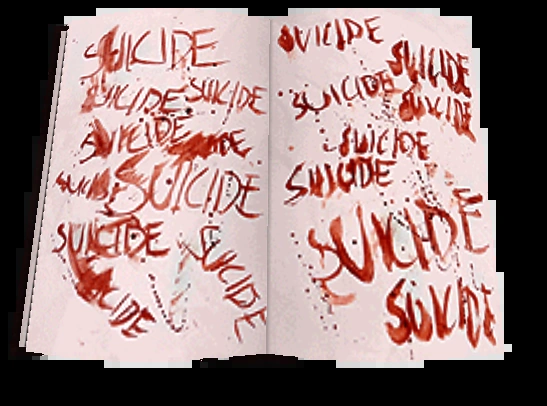 SUICIDE
SUICIDE SUICIDE
SUICIDE
SUICIDE
SUICIDE
SUICIDE
SUICIDE
SUICIDE
SUICIDE
SUICIDE
SUICIDE
SUICIDE
SUICIDE
SUICIDE
SUICIDE